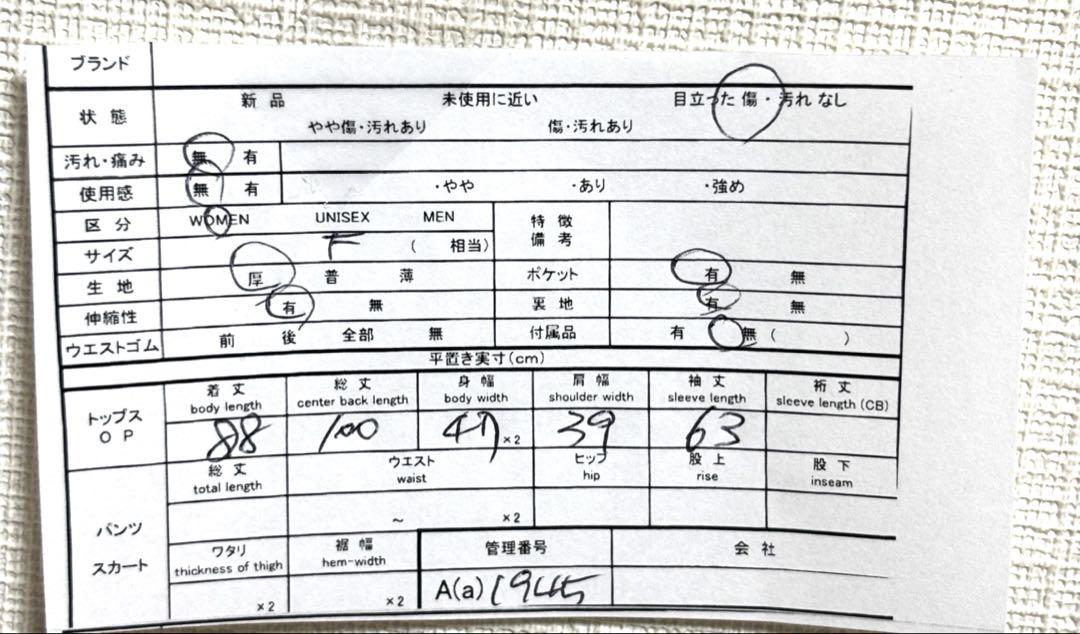 ブランド
状態 新品 未使用に近い 目立った傷・汚れなし
やや傷・汚れあり 傷・汚れあり
汚れ・痛み 無 有
使用感 無 有 ・やや ・あり ・強め
区分 WOMEN UNISEX MEN 特徴備考
サイズ F ( 相当)
生地 厚 普 薄 ポケット 有 無
伸縮性 有 無 裏地 有 無
ウエストゴム 前 後 全部 無 付属品 有 無 ( )
平置き実寸(cm)
トップス OP 着丈 総丈 身幅 肩幅 袖丈 裄丈
body length center back length body width shoulder width sleeve length sleeve length (CB)
88 100 47 ×2 39 63
パンツ スカート 総丈 ウエスト ヒップ 股上 股下
total length waist hip rise inseam
~ ×2
ワタリ 裾幅 管理番号 会社
thickness of thigh hem-width
×2 ×2 A(a) 1945